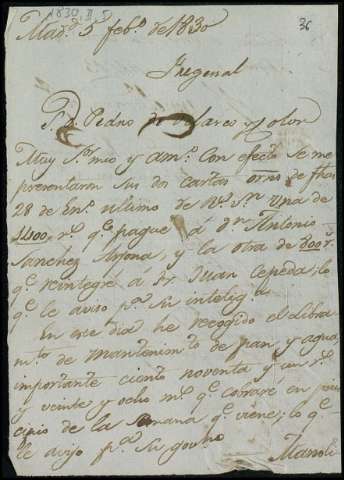 1830, II, 5
36
Mad.d 5 feb.o de 1830
Fregenal
S. D. Pedro de Velasco y Colon
Muy S.r mio y am.o Con efecto se me
presentaron sus dos cartas orns de fhas
28 de En.o ultimo de V. S.r una de
1400 r.s q.e pagué á d.n Antonio
Sanchez Arjona, y la otra de 800 r.s
q.e reintegré á D. Juan Cepeda; lo
q.e le aviso p.a su intelig.a
En este dia he recogido el libra
m.to de mantenim.to de pan, y agua,
importante ciento noventa y un r.s
y veinte y ocho m.s q.e cobraré en prin
cipio de la semana q.e viene; lo q.e
le aviso p.a su govno
Manol